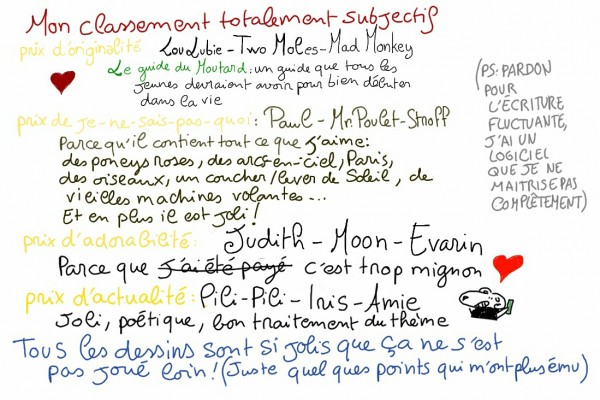 Mon classement totalement subjectif
prix d'originalité LouLubie - Two Moles - Mad Monkey
Le guide du Moutard : un guide que tous les
jeunes devraient avoir pour bien débuter
dans la vie
prix de je-ne-sais-pas-quoi : Paul - Mr.Poulet - Stnoff
Parce qu'il contient tout ce que j'aime :
des poneys roses, des arcs-en-ciel, Paris,
des oiseaux, un coucher/lever de Soleil, de
vieilles machines volantes...
Et en plus il est joli !
prix d'adorabilité : Judith - Moon - Evarin
Parce que j'ai été payé c'est trop mignon
prix d'actualité : Pili-Pili - Inis - Amie
Joli, poétique, bon traitement du thème
Tous les dessins sont si jolis que ça ne s'est
pas joué loin ! (Juste quelques points qui m'ont plus ému)
(PS : PARDON
POUR
L'ÉCRITURE
FLUCTUANTE,
J'AI UN
LOGICIEL
QUE JE NE
MAITRISE PAS
COMPLÈTEMENT)